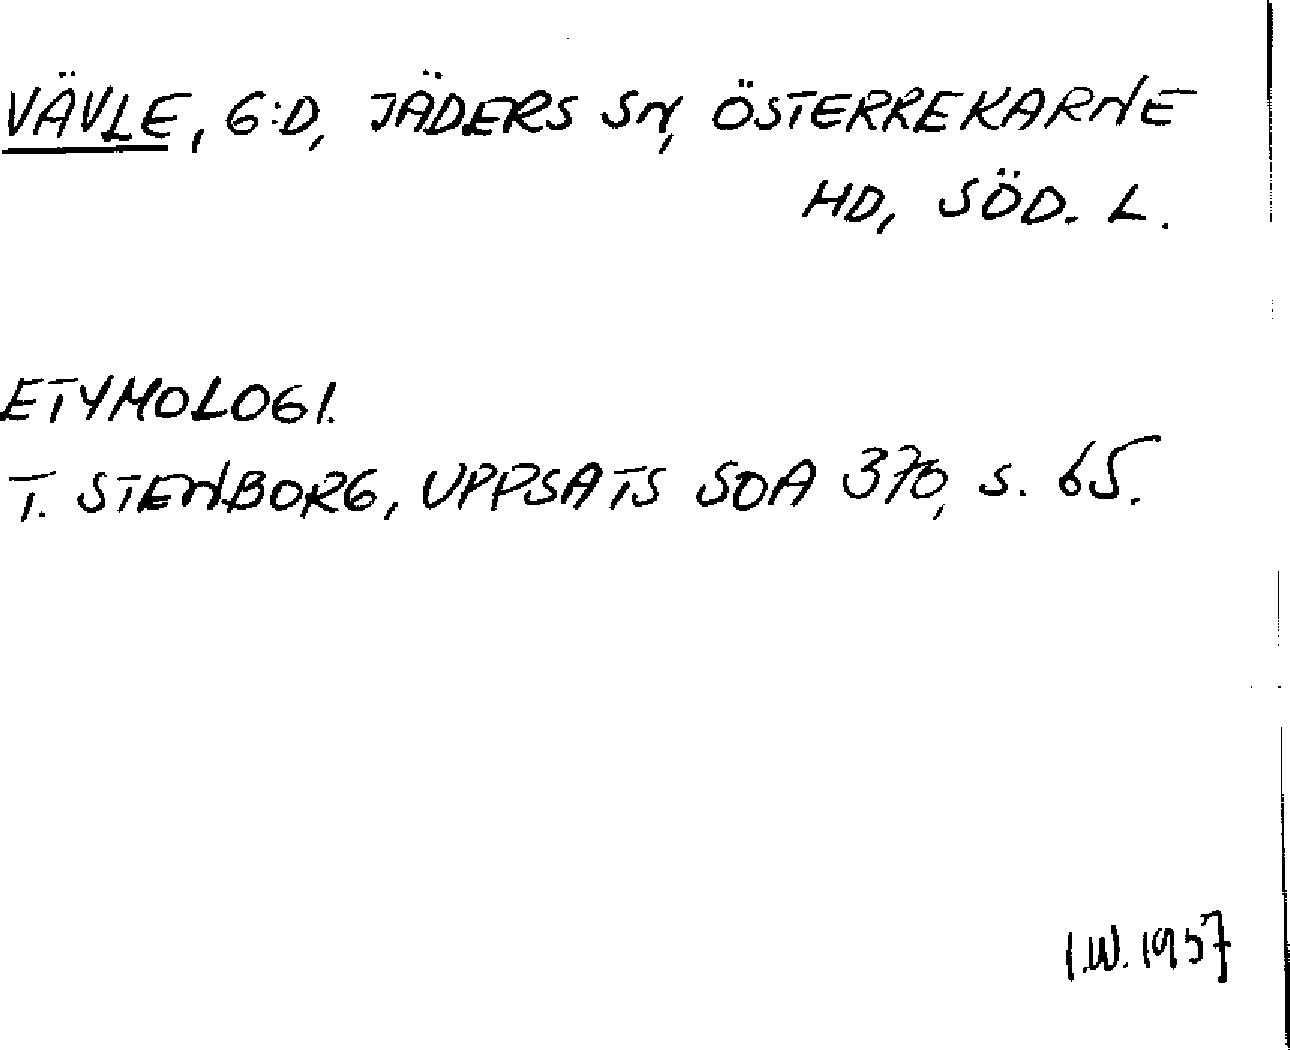 VÄVLE, G:D, JÄDERS SN, ÖSTERREKARNE
HD, SÖD. L.
ETYMOLOGI.
T. STENBORG, UPPSATS SOA 370, S. 65.
I.W. 1957